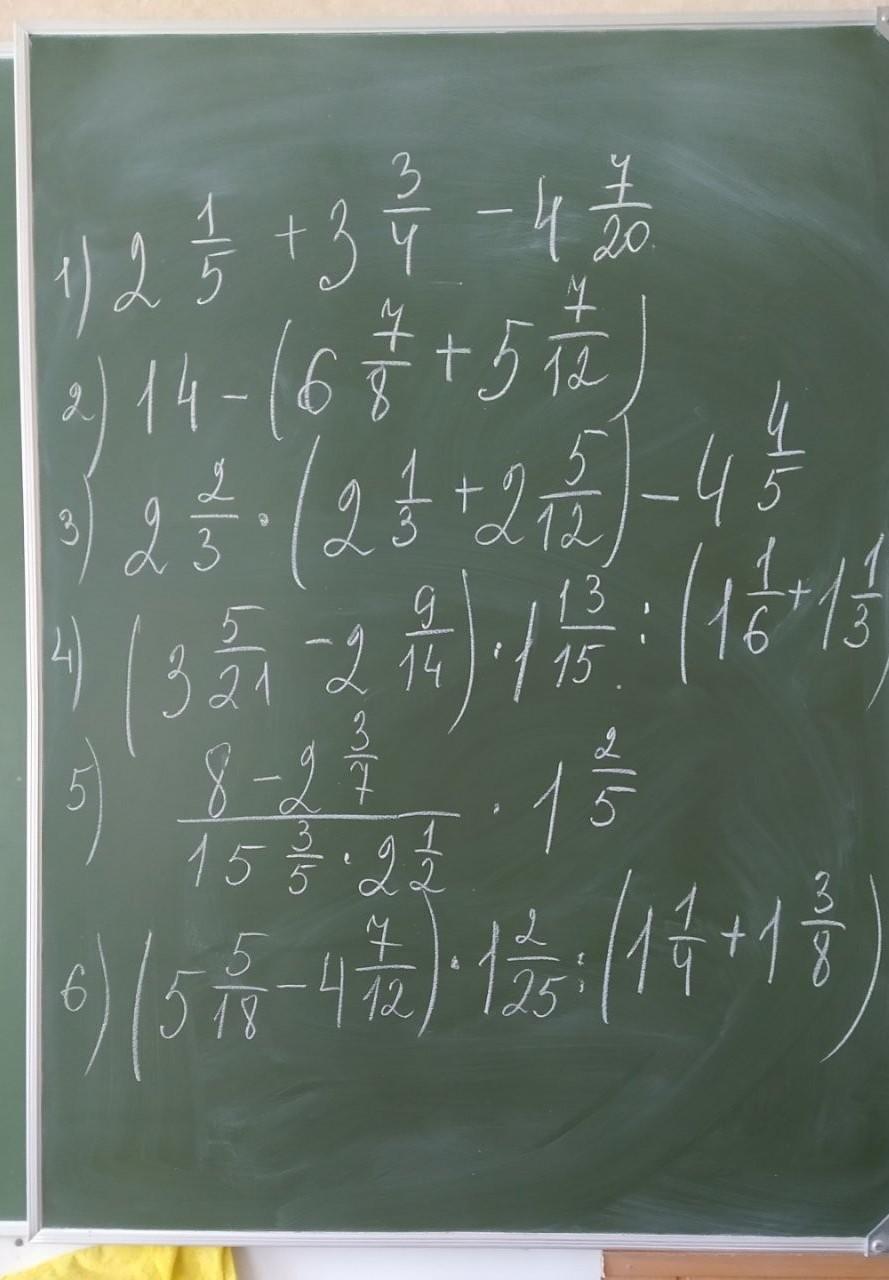 1) 2 1/5 + 3 3/4 - 4 7/20
2) 14 - (6 7/8 + 5 7/12)
3) 2 2/3 · (2 1/3 + 2 5/12) - 4 4/5
4) (3 5/21 - 2 9/14) · 1 13/15 : (1 1/6 + 1 1/3)
5) (8 - 2 3/7)/(15 3/5 · 2 1/2) · 1 2/5
6) (5 5/18 - 4 7/12) · 1 2/25 : (1 1/4 + 1 3/8)